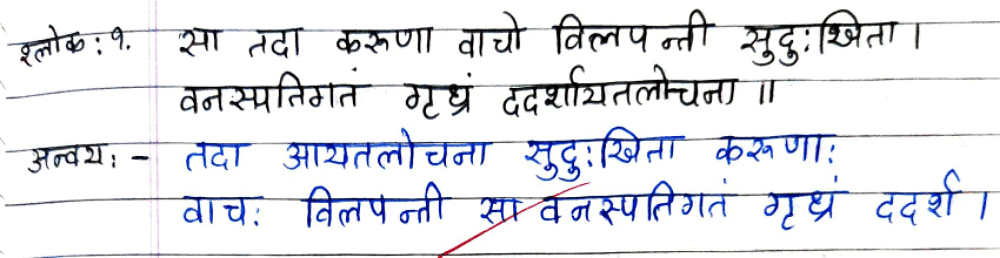 श्लोक: १. सा तदा करुणा वाचो विलपन्ती सुदुःखिता ।
वनस्पतिगतं गृध्रं ददर्शायतलोचना ॥
अन्वय: - तदा आयतलोचना सुदुःखिता करुणा:
वाच: विलपन्ती सा वनस्पतिगतं गृध्रं ददर्श ।